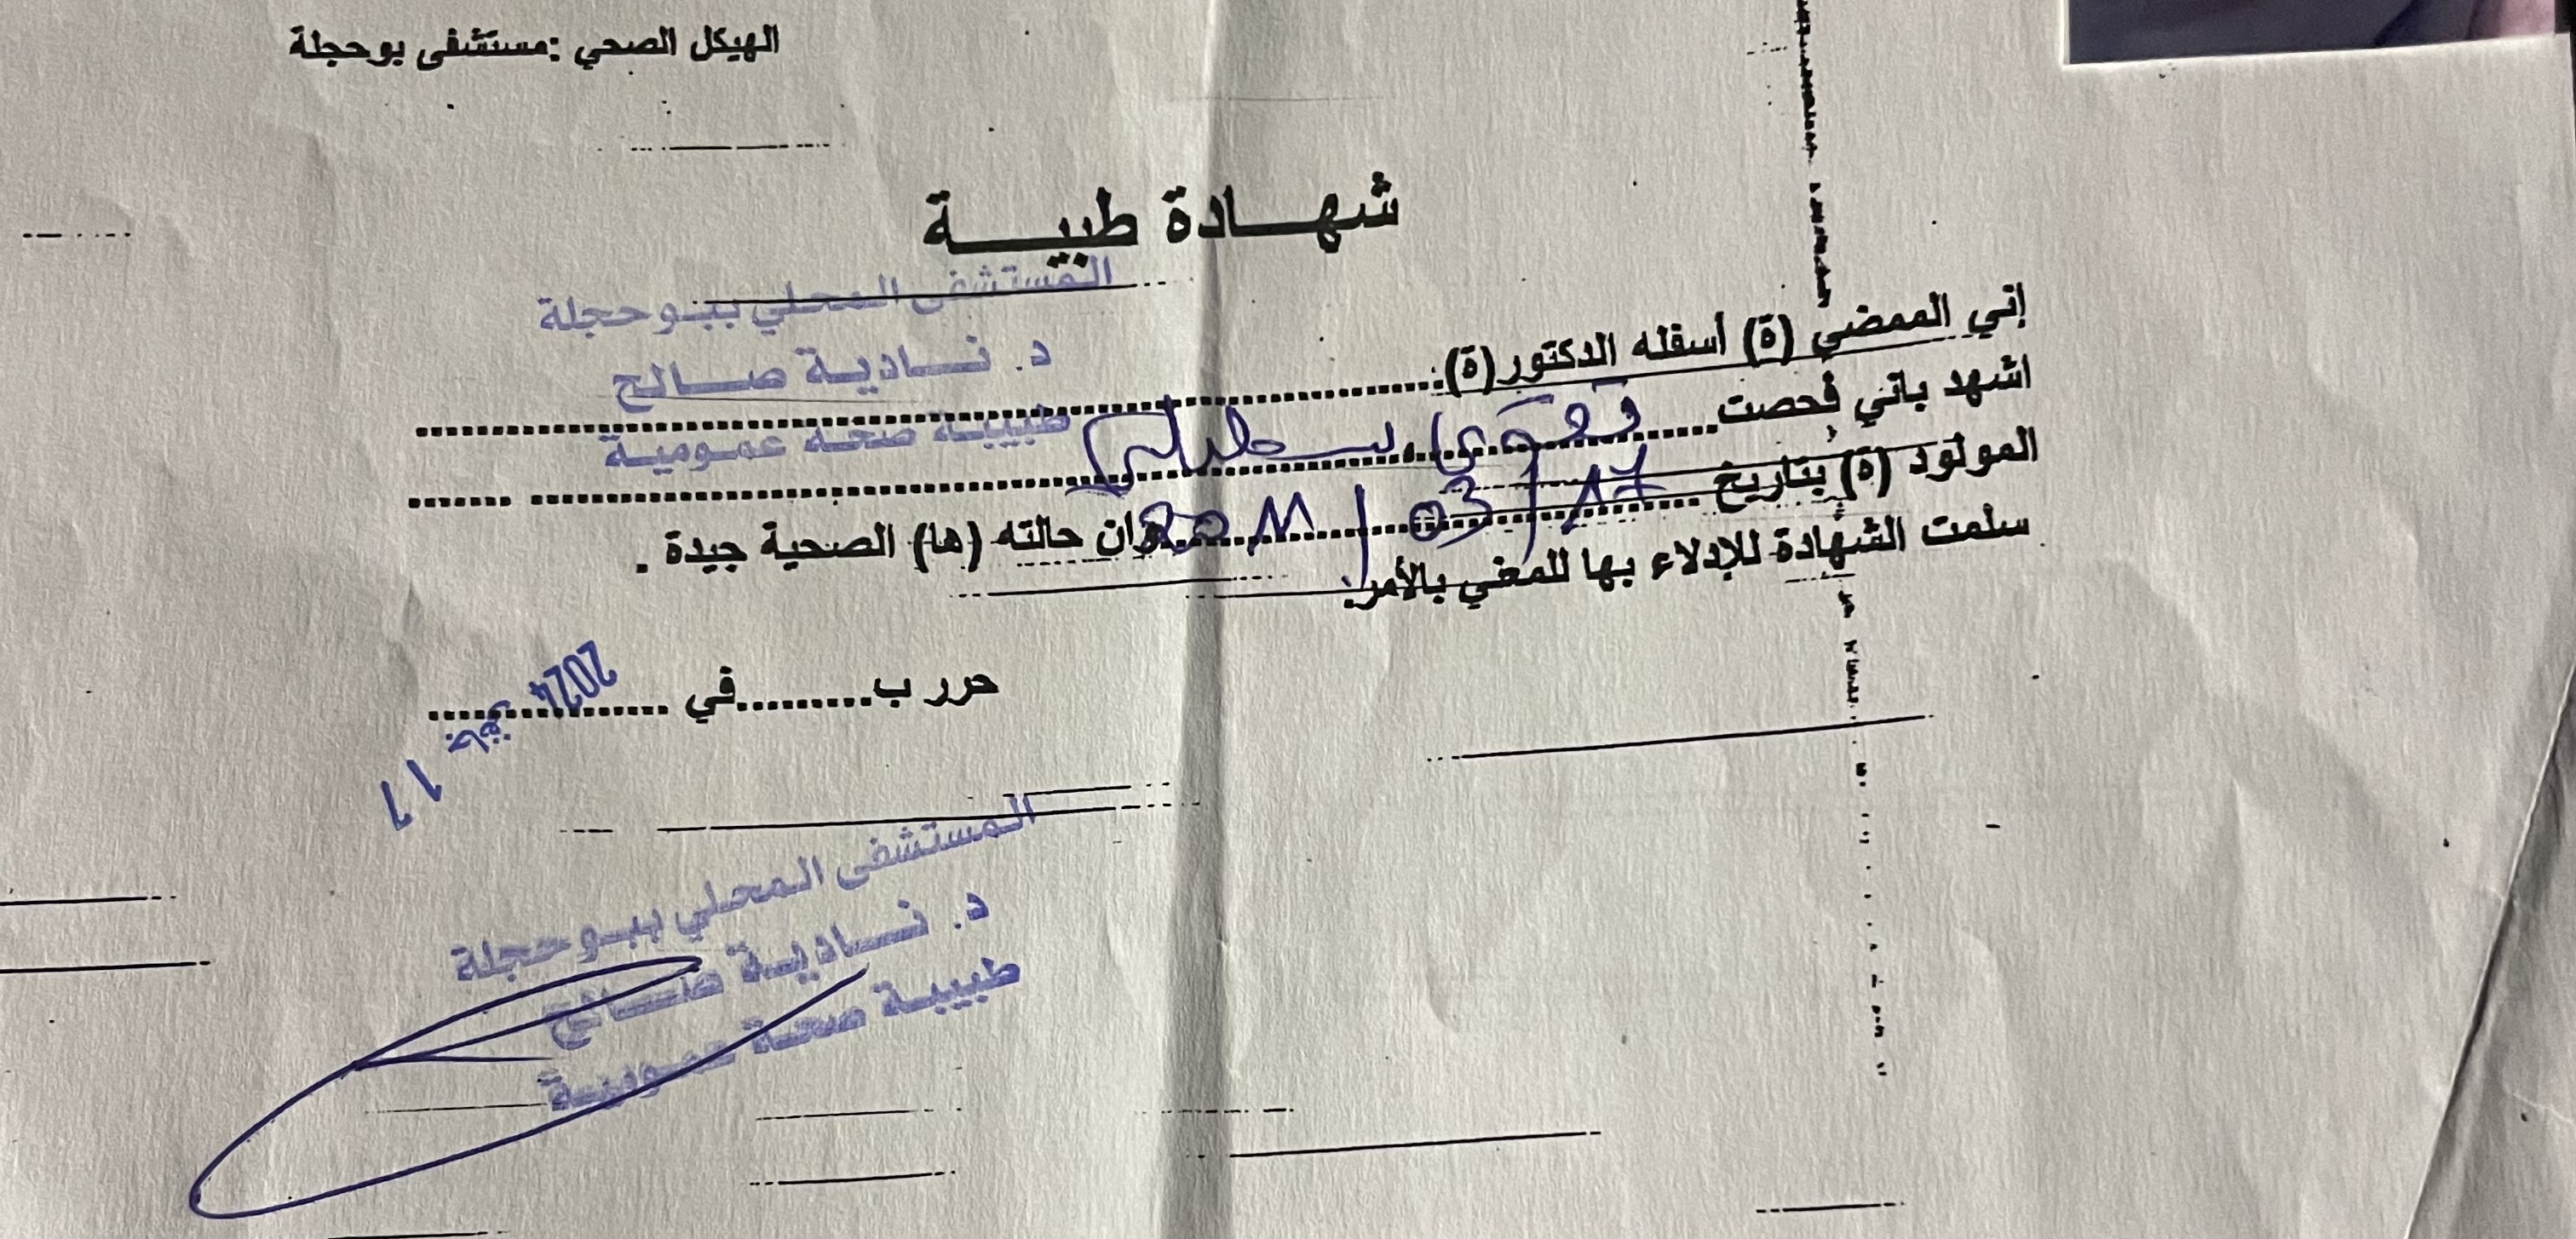 الهيكل الصحي :مستشفى بوحجلة
شهـــادة طبيـــة
المستشفى المحلي ببوحجلة
د. نادية صالح
طبيبة صحة عمومية
إني الممضي (ة) أسفله الدكتور(ة):
اشهد باني فحصت
المولود (ة) بتاريخ 17/03/2011 وان حالته (ها) الصحية جيدة .
سلمت الشهادة للإدلاء بها للمعني بالأمر.
حرر ب.........في
2024
المستشفى المحلي ببوحجلة
د. نادية صالح
طبيبة صحة عمومية